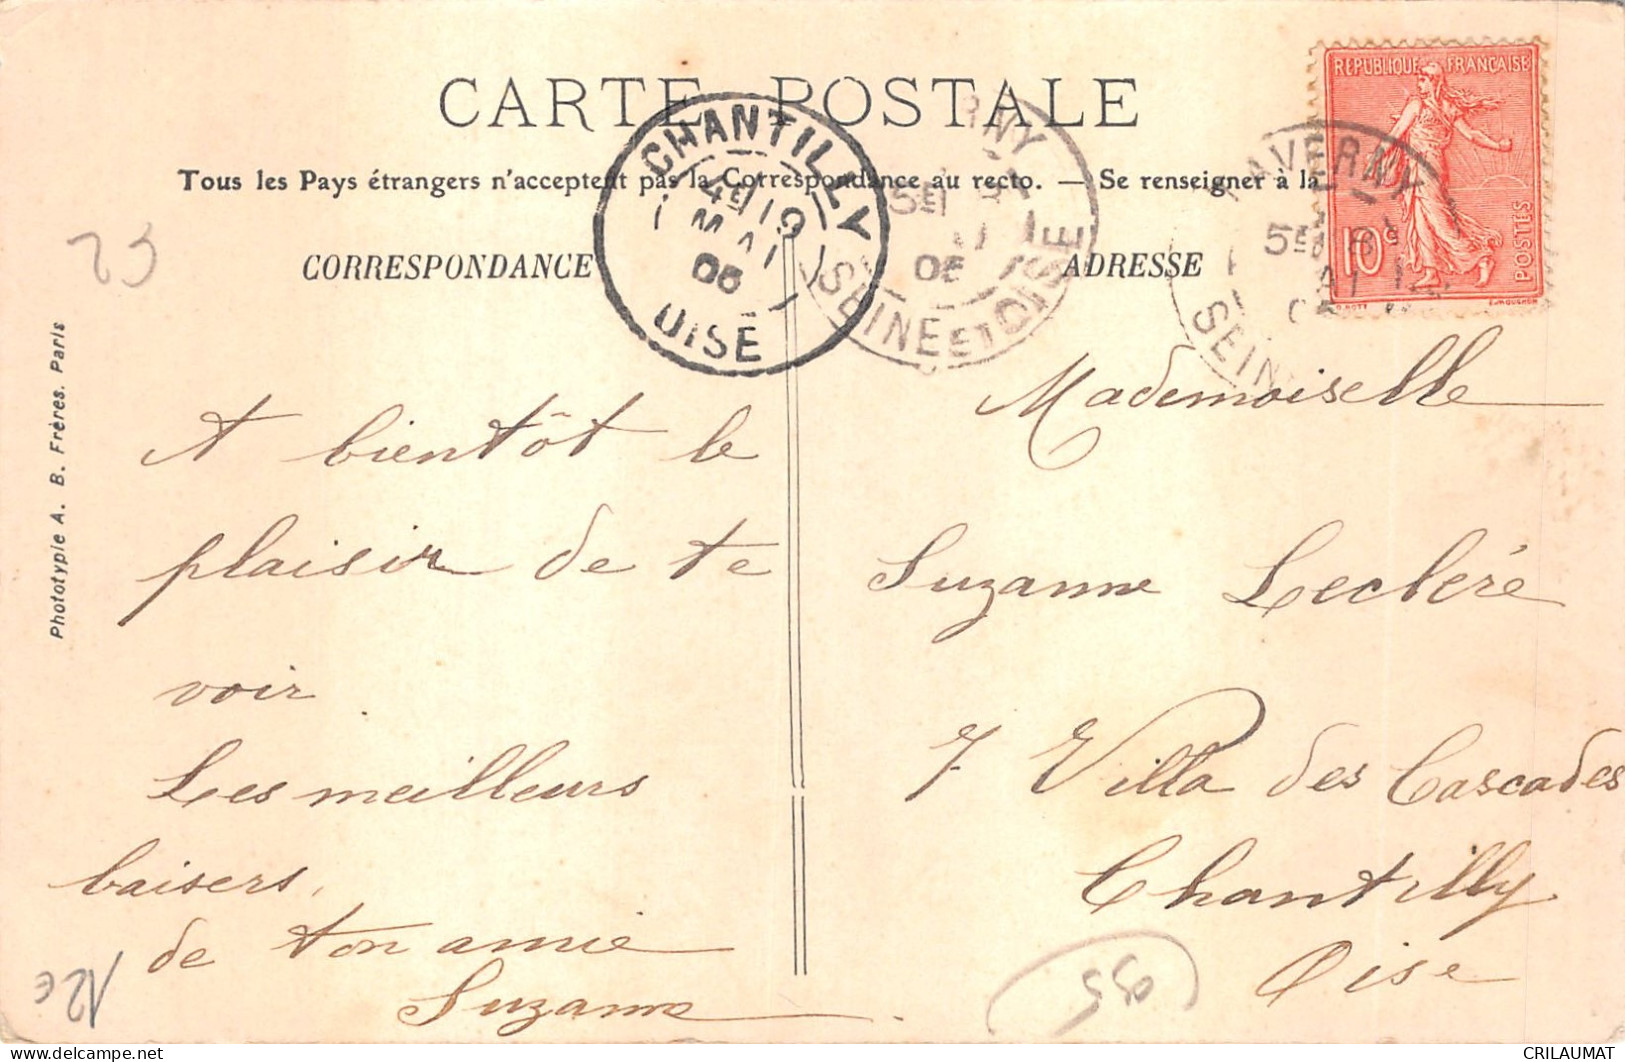 CARTE POSTALE
Tous les Pays étrangers n'acceptent pas la Correspondance au recto. — Se renseigner à la
CORRESPONDANCE
ADRESSE
CHANTILLY
4E 19
MAI
06
OISE
RNY
5E
06
SEINE ET OISE
TAVERNY
5E
SEIN
REPUBLIQUE FRANÇAISE
10c
POSTES
23
Phototypie A. B. Frères. Paris
A bientôt le
plaisir de te
voir
Les meilleurs
baisers,
de ton amie
Suzanne
Mademoiselle
Suzanne Lecléré
7 Villa des Cascades
Chantilly
Oise
12€
095
CRILAUMAT